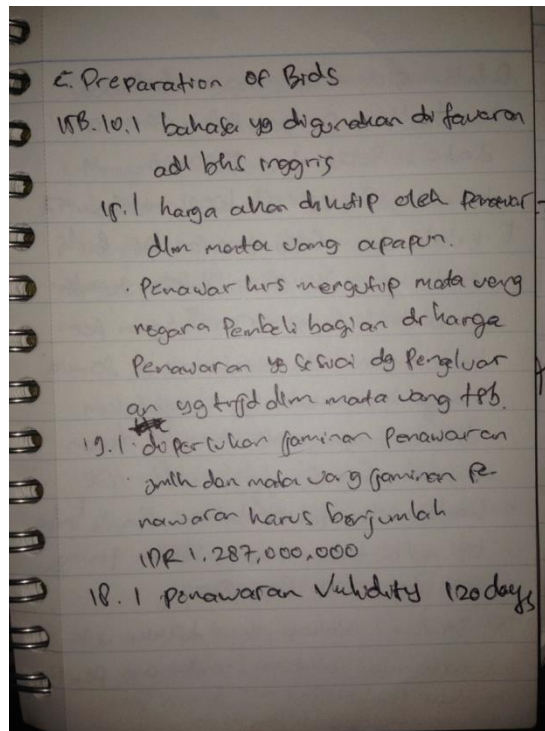 C. Preparation of Bids
ITB.10.1 bahasa yg digunakan di tawaran
adl bhs inggris
15.1 harga akan dikutip oleh Penawar
dlm mata uang apapun.
· Penawar hrs mengutip mata uang
negara Pembeli bagian dr harga
Penawaran yg sesuai dg Pengluar
an yg trjd dlm mata uang tsb.
19.1. diperlukan jaminan Penawaran
· jmlh dan mata uang jaminan Pe-
nawaran harus berjumlah
IDR 1.287,000,000
18.1 Penawaran Validity 120 days